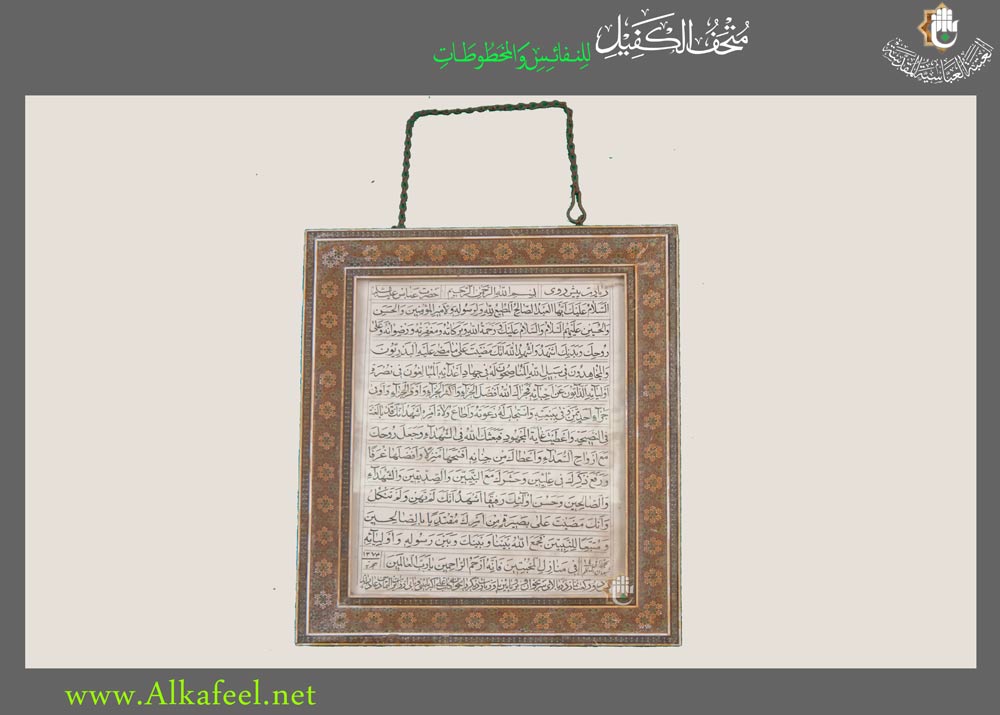 متحف الكفيل
للنفائس والمخطوطات
العتبة العباسية المقدسة
زيارت پیش روی بسم الله الرحمن الرحيم حضرت عباس عليه السلام
السلام عليك ايها العبد الصالح المطيع لله ولرسوله ولامير المؤمنين والحسن
والحسين عليهم السلام والسلام عليك ورحمة الله وبركاته ومغفرته ورضوانه وعلى
روحك وبدنك اشهد واشهد الله انك مضيت على ما مضى عليه البدريون
والمجاهدون في سبيل الله المناصحون له في جهاد اعدائه المبالغون في نصرة
اوليائه الذابون عن احبائه فجزاك الله افضل الجزاء واكثر الجزاء واوفر الجزاء واوفى
جزاء احد ممن وفى ببيعته واستجاب له دعوته واطاع ولاة امره اشهد انك قد بالغت
في النصيحه واعطيت غاية المجهود فبعثك الله في الشهداء وجعل روحك
مع ارواح السعداء واعطاك من جنانه افسحها منزلا وافضلها غرفا
ورفع ذكرك في عليين وحشرك مع النبيين والصديقين والشهداء
والصالحين وحسن اولئك رفيقا اشهد انك لم تهن ولم تنكل
وانك مضيت على بصيرة من امرك مقتديا بالصالحين
ومتبعا للنبيين فجمع الله بيننا وبينك وبين رسوله واوليائه
في منازل المخبتين فانه ارحم الراحمين يا رب العالمين ١٣٧٣
www.Alkafeel.net